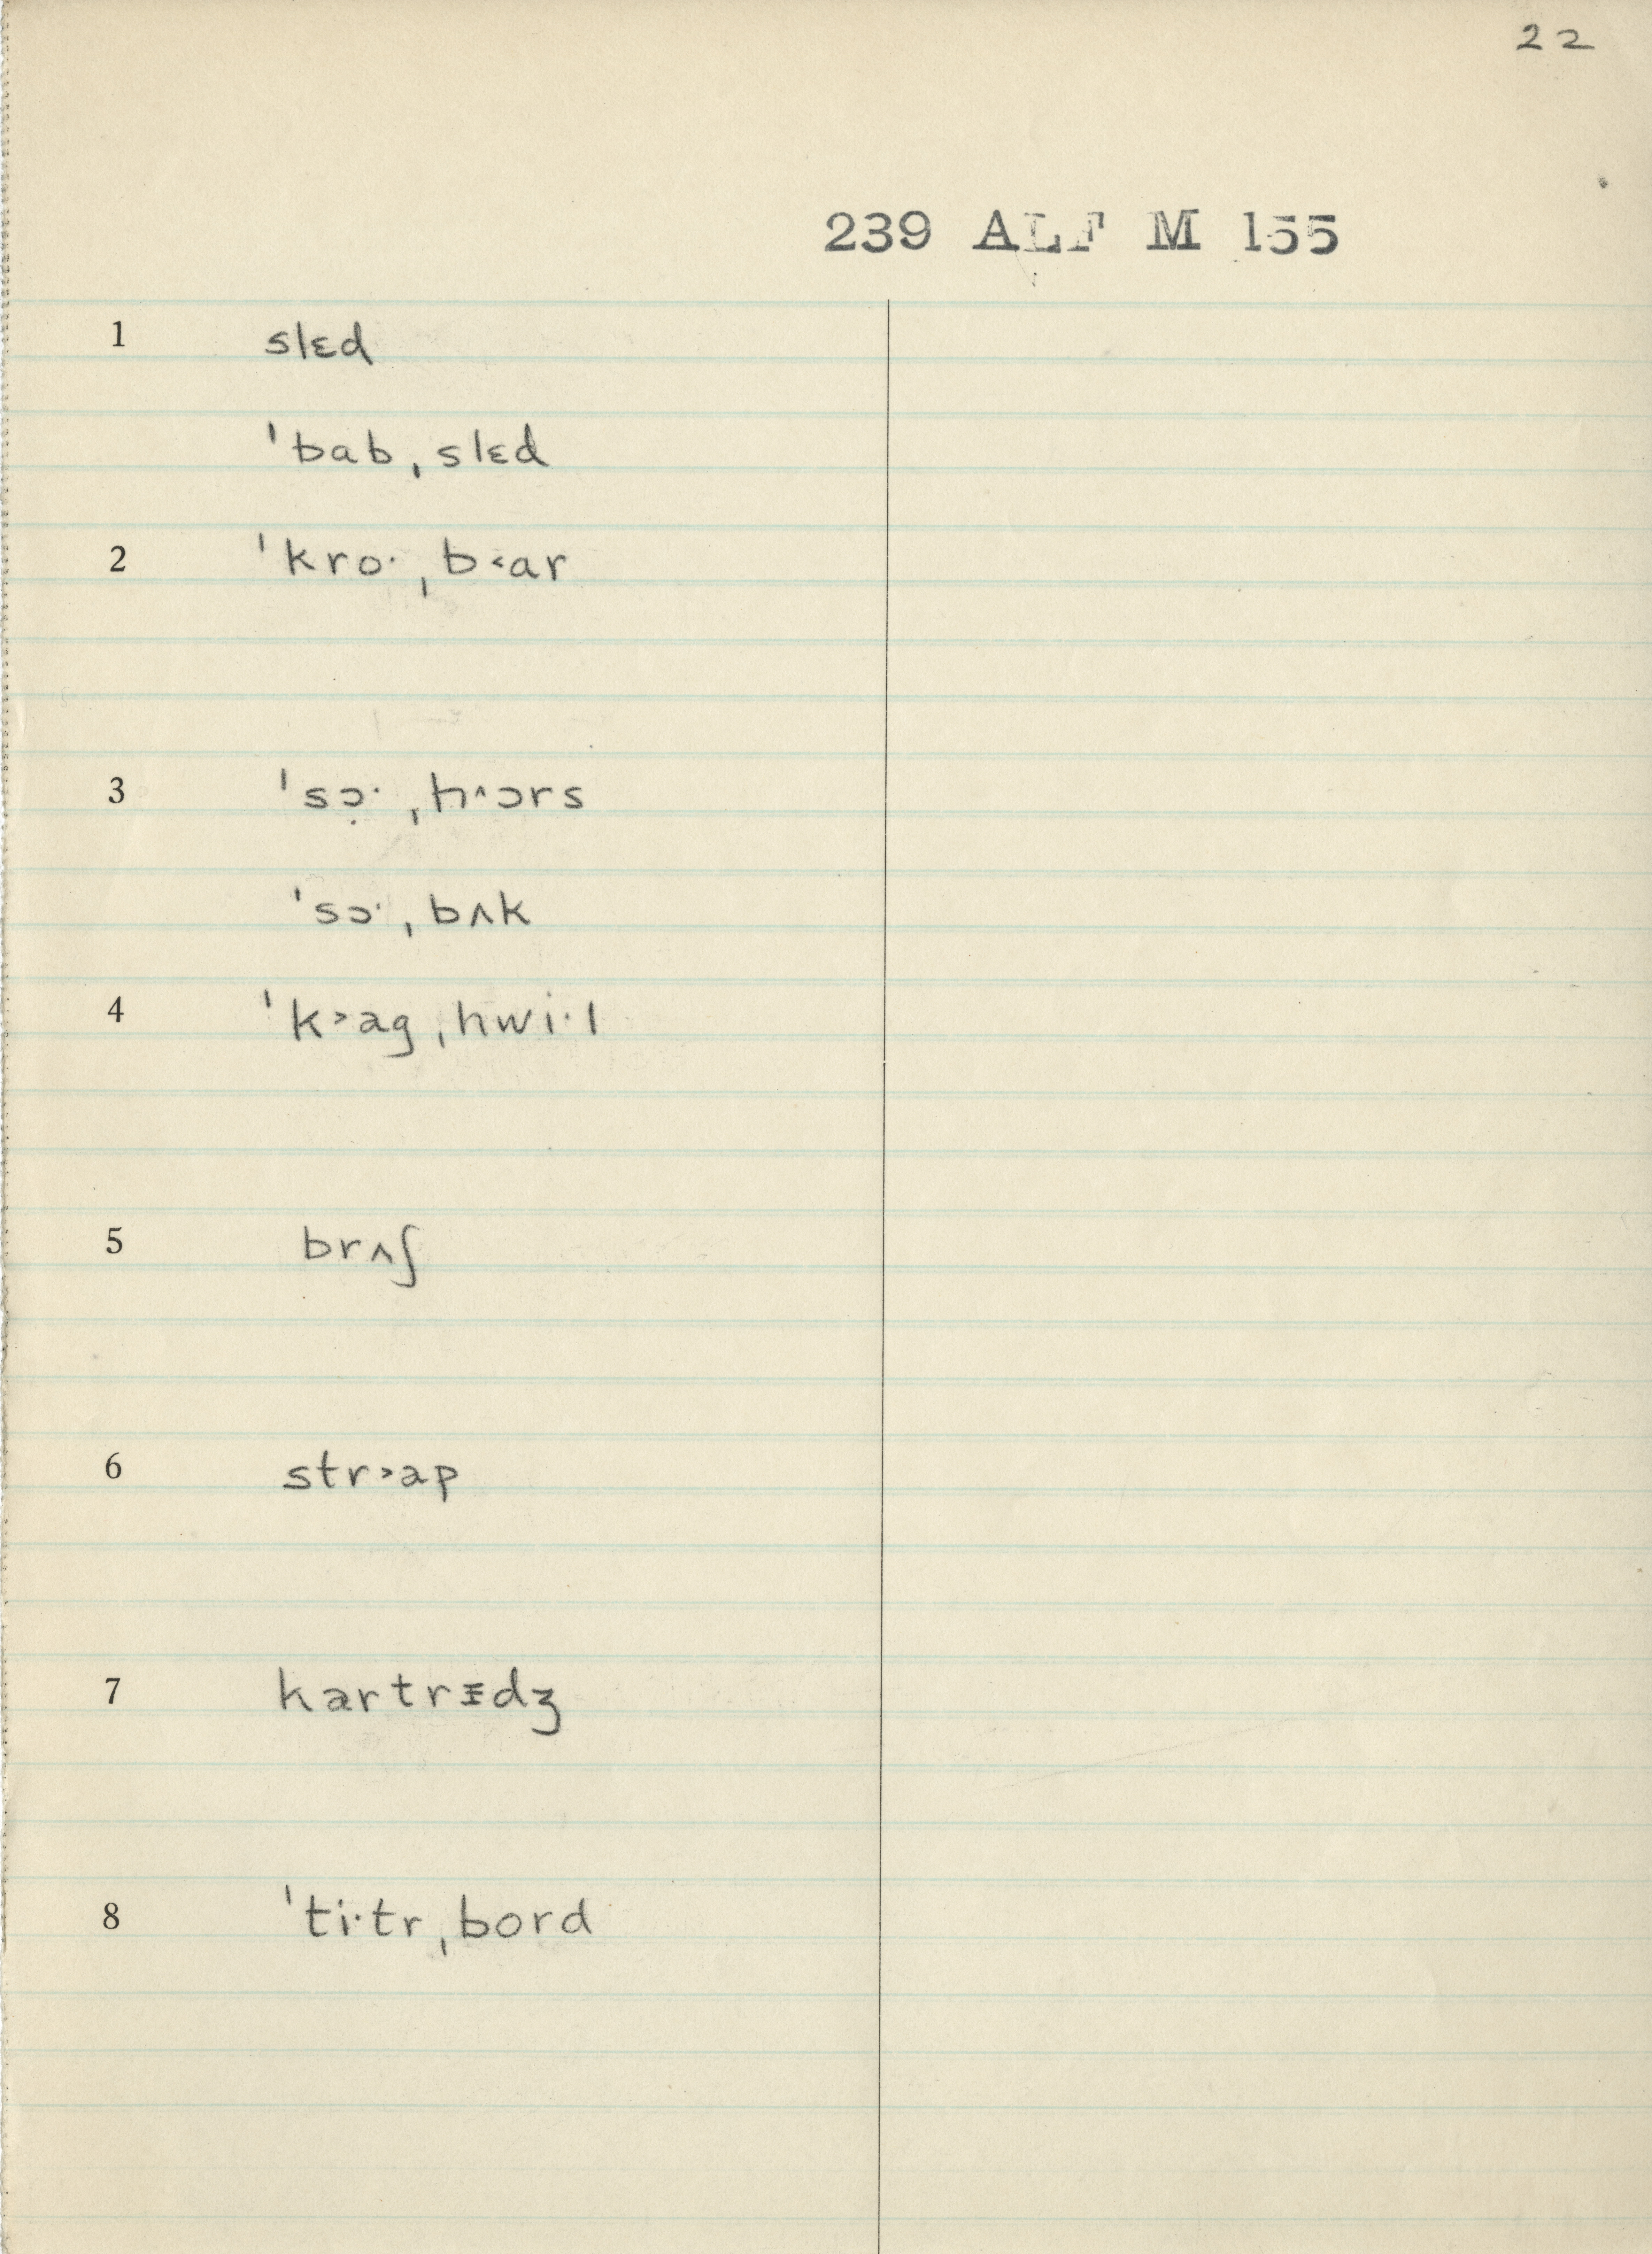 22
239 ALF M 155
1 slɛd
ˈbab ˌslɛd
2 ˈkroˑ ˌb˂ar
3 ˈsɔ̣ˑ ˌh˄ɔrs
ˈsɔˑ ˌbʌk
4 ˈk˃ag ˌhwiˑl
5 brʌʃ
6 str˃ap
7 kartrᵻdʒ
8 ˈtiˑtr ˌbord